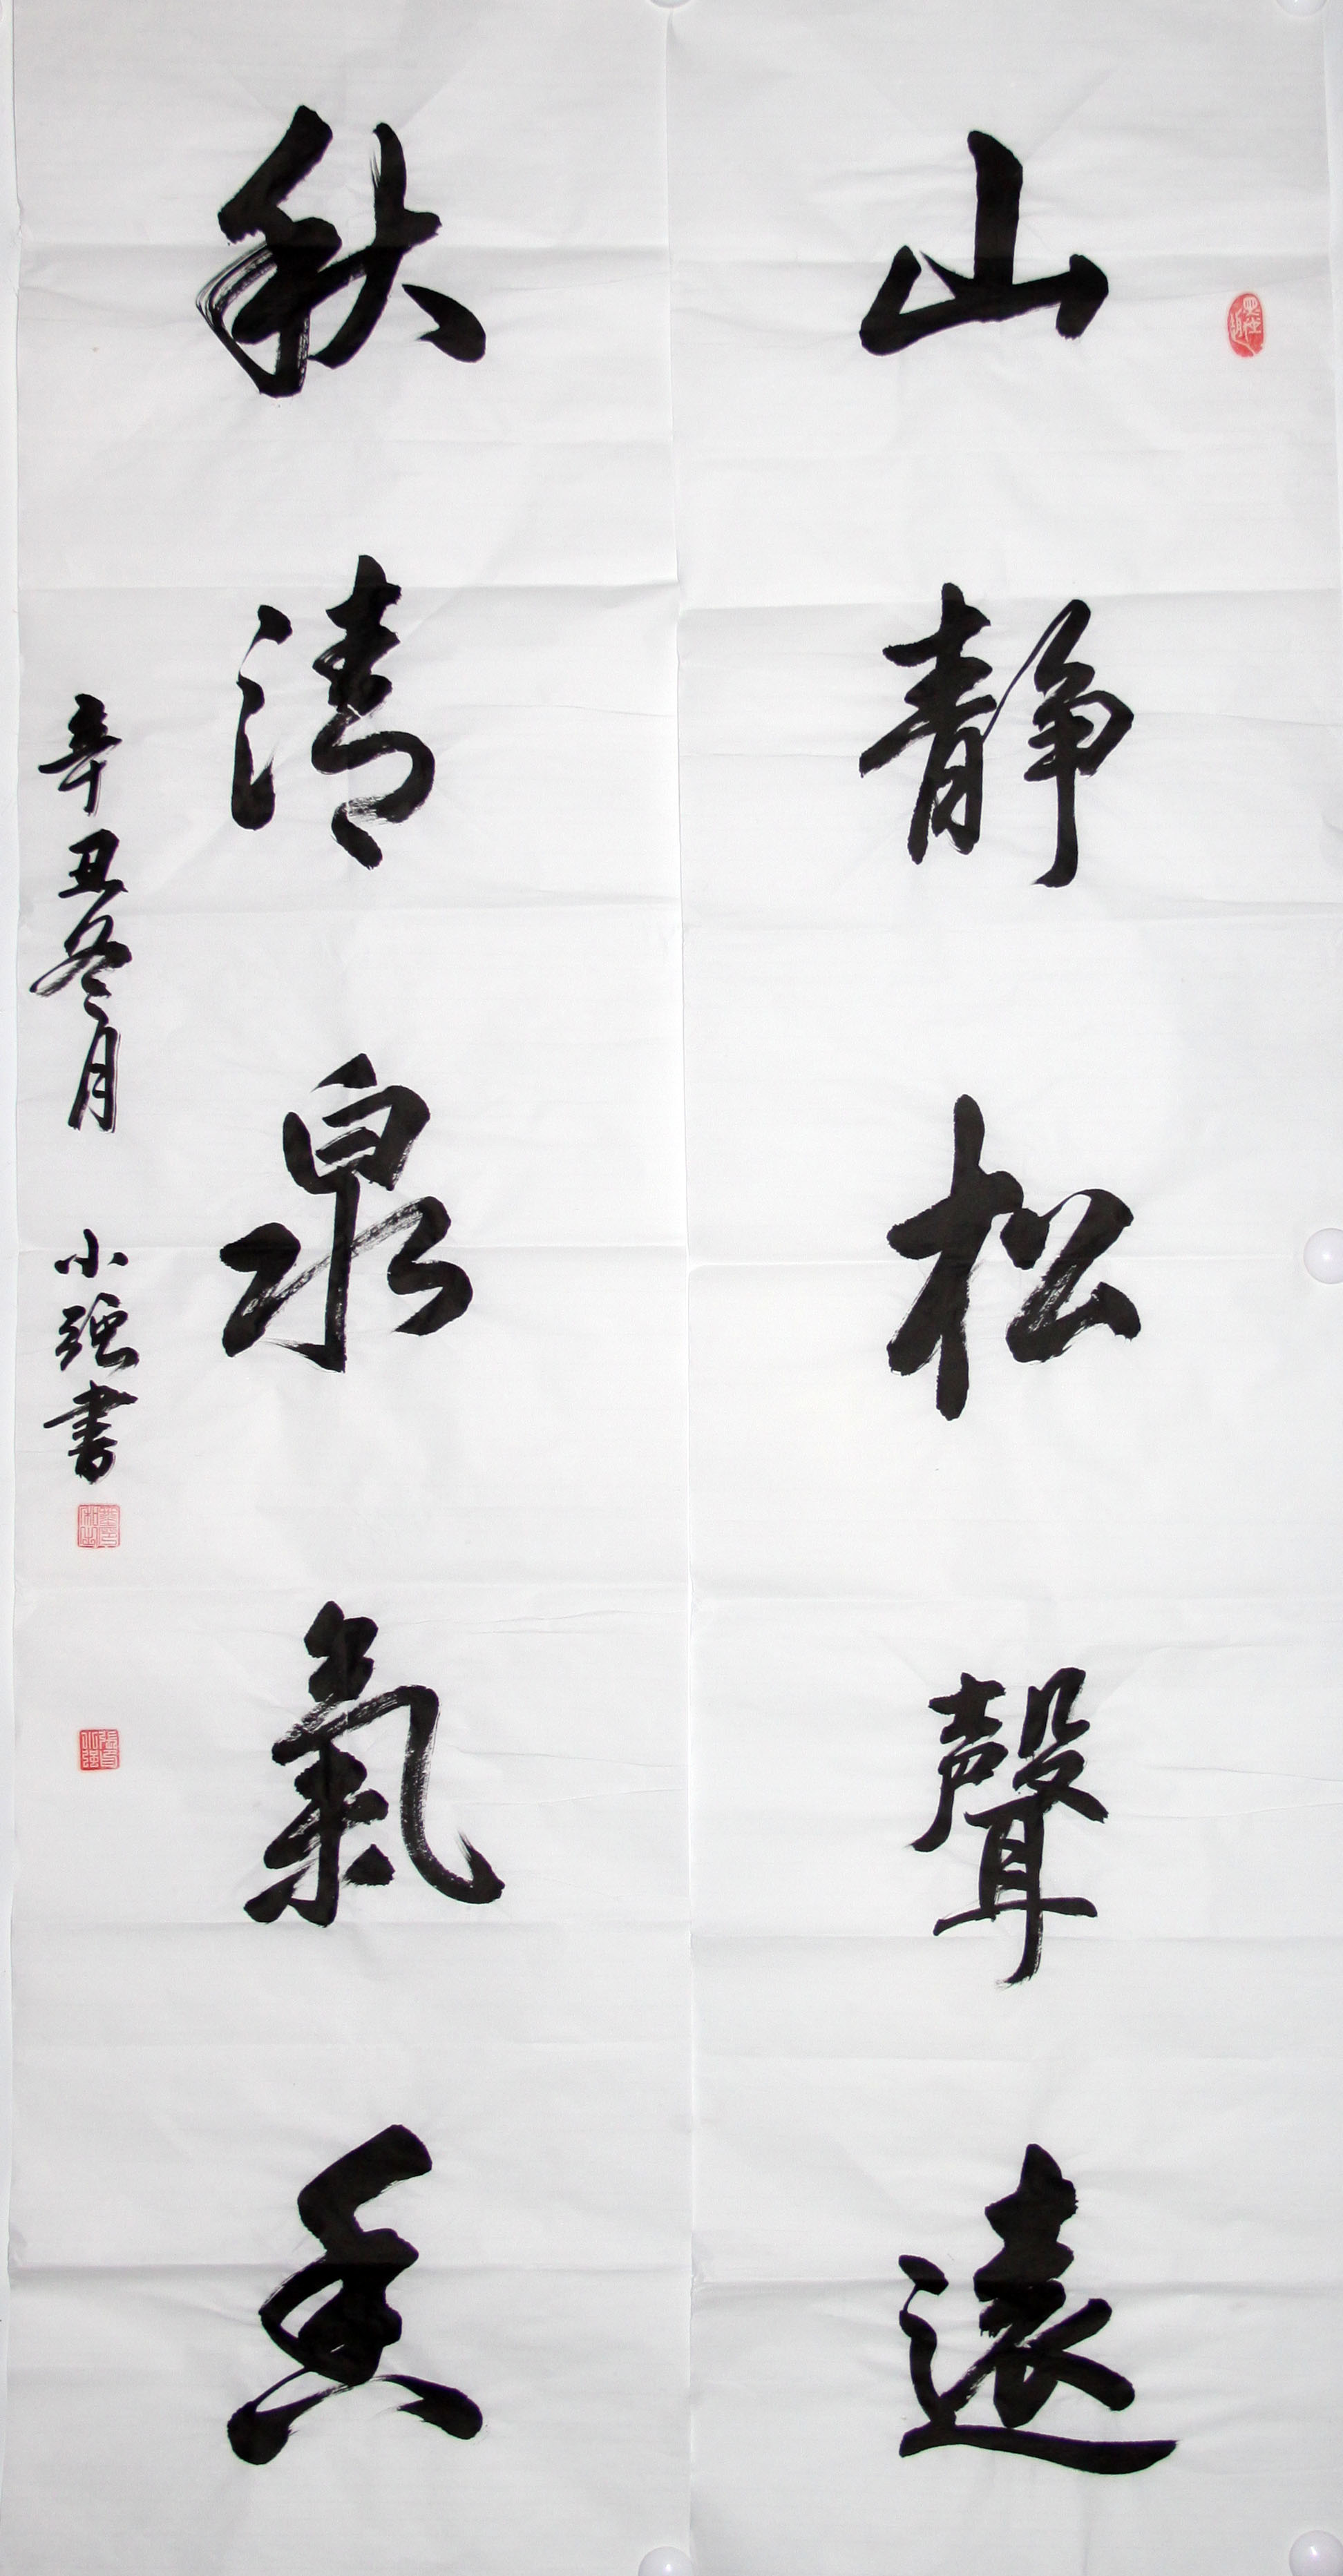 山静松聲遠
秋清泉氣香
辛丑冬月 小强書